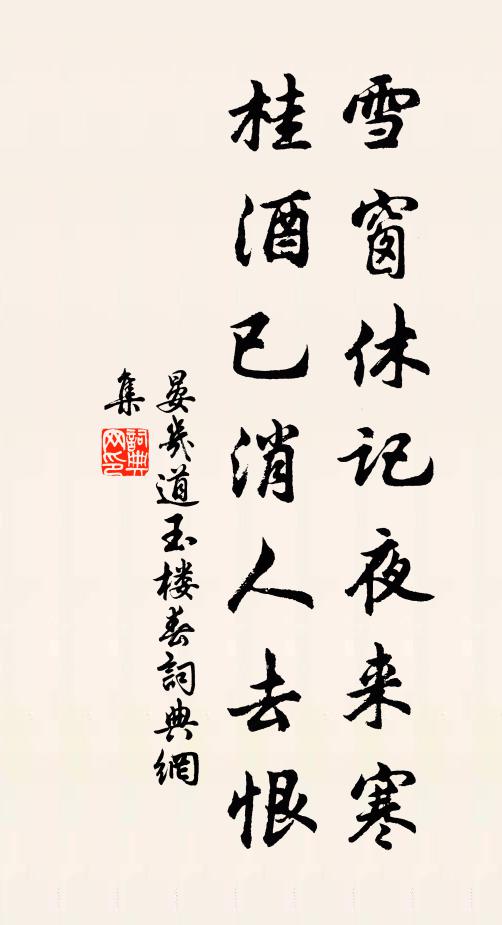 雪窗休记夜来寒
桂酒已消人去恨
晏几道玉楼春詞典網
集
詞典
网印